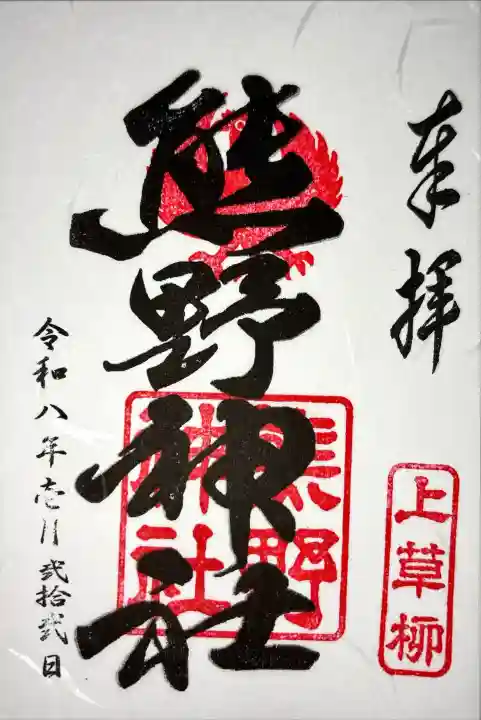 奉拝
上草柳
熊野神社
熊野
神社
令和八年壱月弐拾弐日